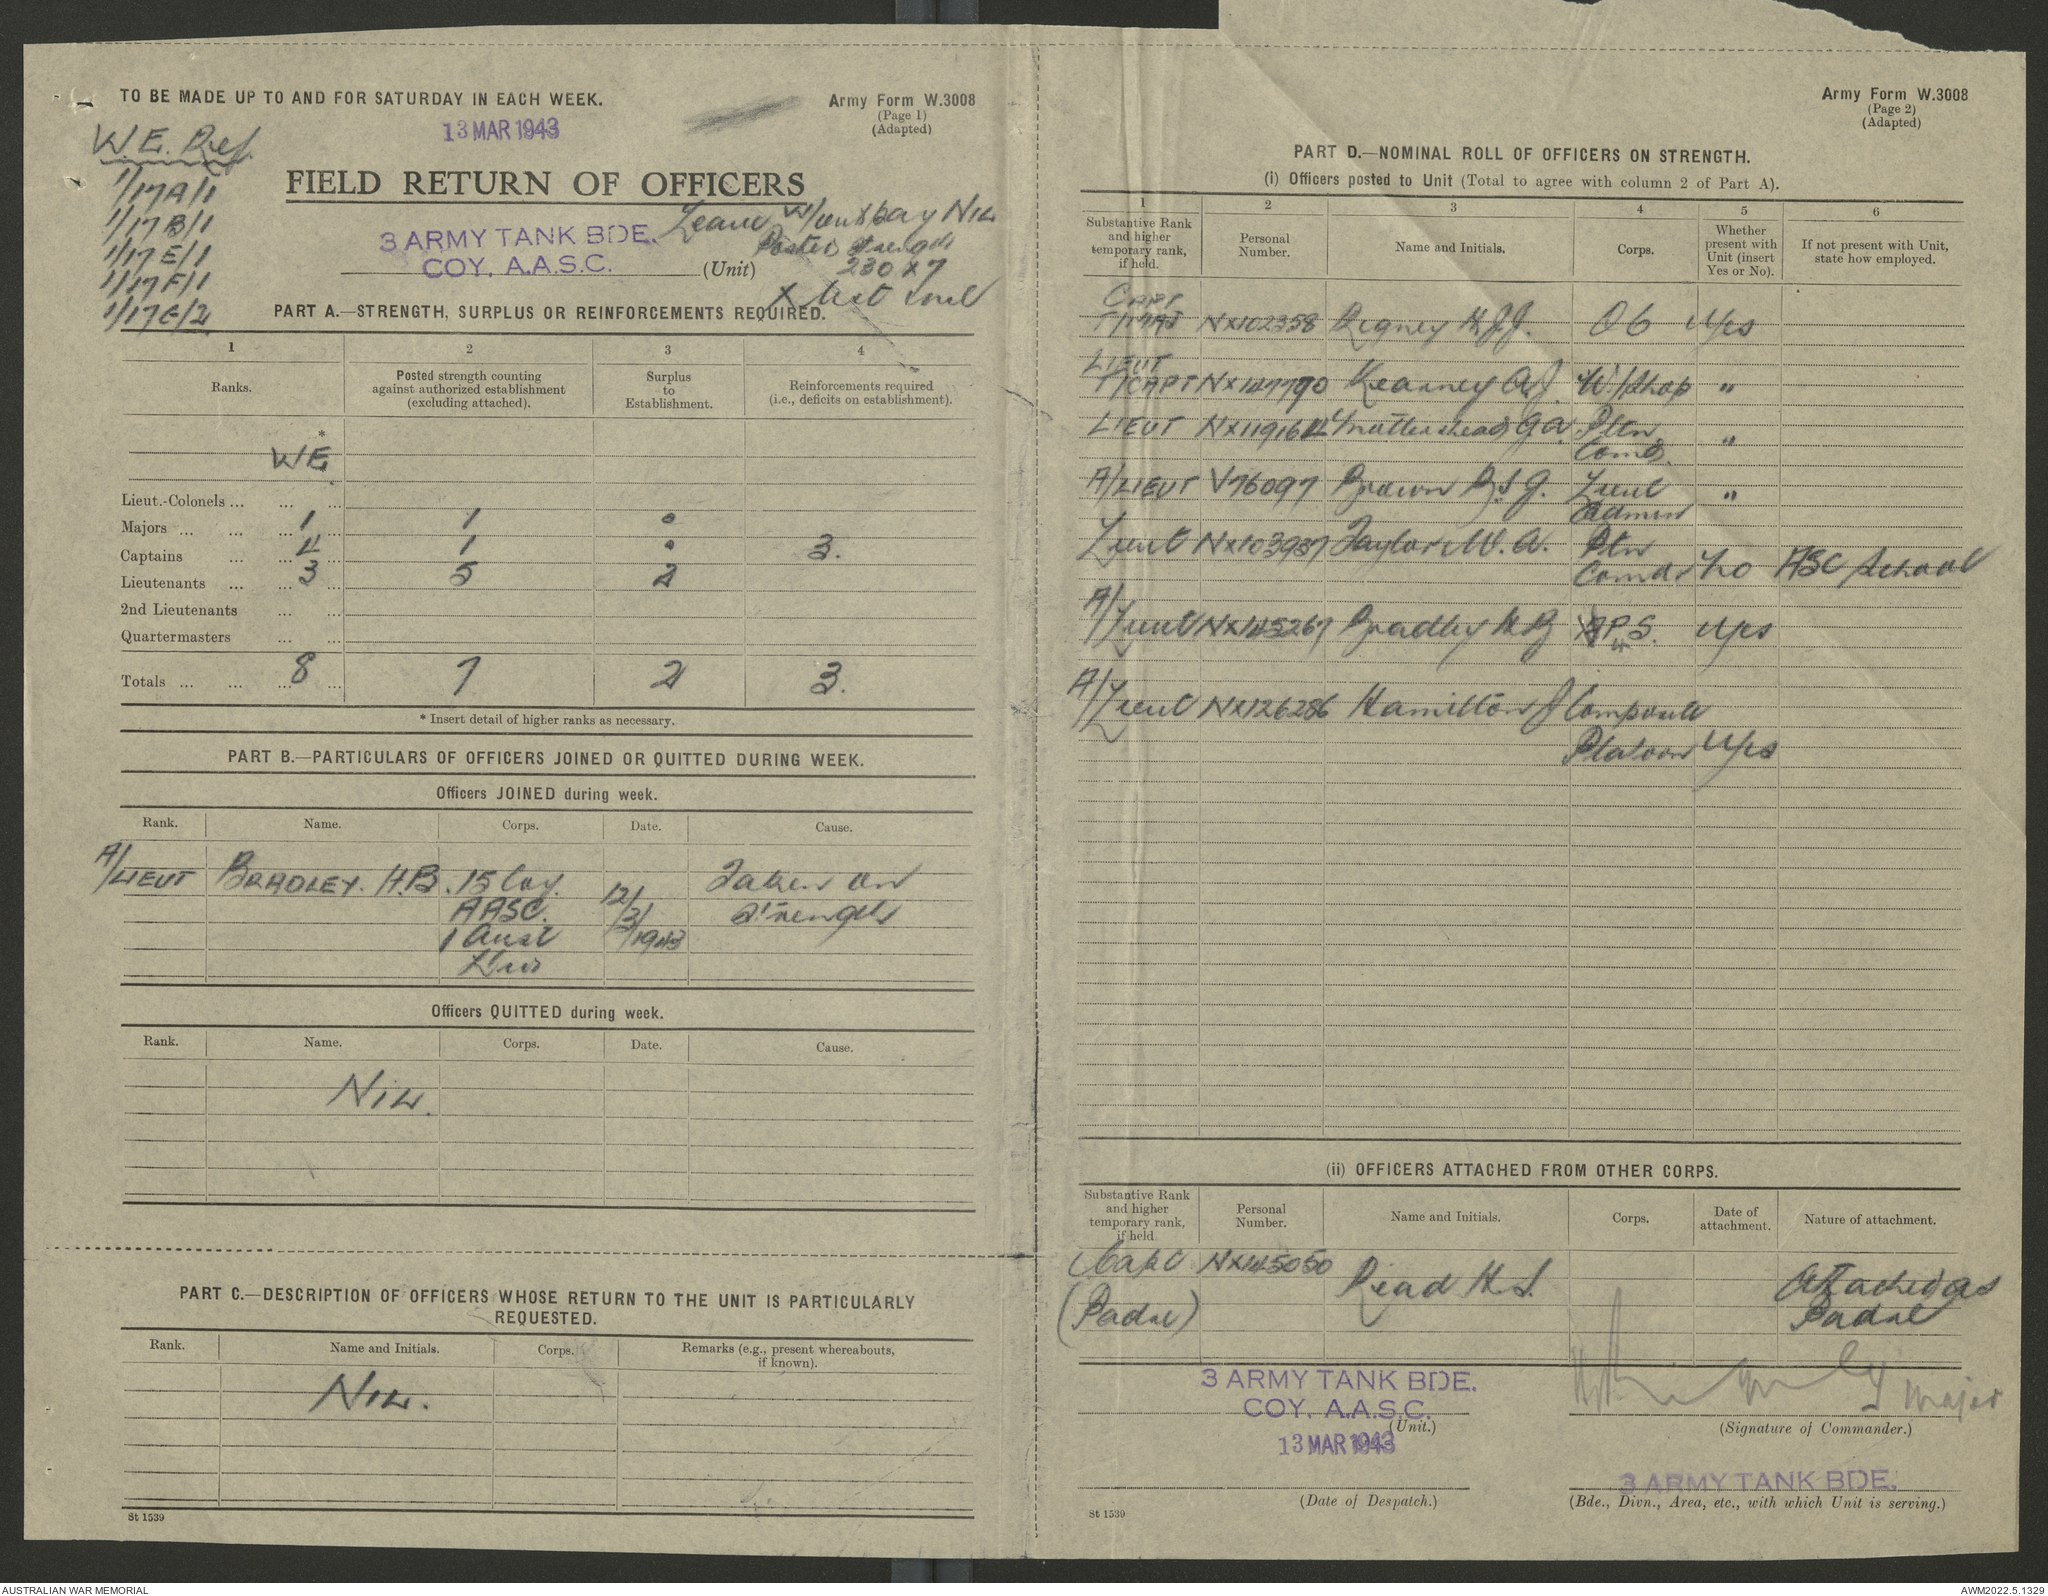 TO BE MADE UP TO AND FOR SATURDAY IN EACH WEEK.
Army Form W.3008
(Page 1)
(Adapted)
13 MAR 1943
W.E. Ref.
1/17A/1
1/17B/1
1/17E/1
1/17F/1
1/17G/2
FIELD RETURN OF OFFICERS
Leave W/out pay NIL
Posted strength
230 x 7
3 ARMY TANK BDE.
COY. A.A.S.C.
(Unit)
PART A.—STRENGTH, SURPLUS OR REINFORCEMENTS REQUIRED.
1 2 3 4
Ranks. Posted strength counting against authorized establishment (excluding attached). Surplus to Establishment. Reinforcements required (i.e., deficits on establishment).
*
WE
*
Lieut.-Colonels ... ... ...
Majors ... ... ... 1 1 0
Captains ... ... 4 1 0 3.
Lieutenants ... ... 3 5 2
2nd Lieutenants ... ...
Quartermasters ... ...
Totals ... ... ... 8 7 2 3.
* Insert detail of higher ranks as necessary.
PART B.—PARTICULARS OF OFFICERS JOINED OR QUITTED DURING WEEK.
Officers JOINED during week.
Rank. Name. Corps. Date. Cause.
A/LIEUT BRADLEY. H.B. 15 Coy. 12/ Taken on
AASC. 3/ Strength
1 Aust /1943
Div
Officers QUITTED during week.
Rank. Name. Corps. Date. Cause.
NIL.
PART C.—DESCRIPTION OF OFFICERS WHOSE RETURN TO THE UNIT IS PARTICULARLY
REQUESTED.
Rank. Name and Initials. Corps. Remarks (e.g., present whereabouts, if known).
NIL.
St 1539
Army Form W.3008
(Page 2)
(Adapted)
PART D.—NOMINAL ROLL OF OFFICERS ON STRENGTH.
(i) Officers posted to Unit (Total to agree with column 2 of Part A).
1 2 3 4 5 6
Substantive Rank and higher temporary rank, if held. Personal Number. Name and Initials. Corps. Whether present with Unit (insert Yes or No). If not present with Unit, state how employed.
CAPT
T/MAJ NX102358 Rigney H.J.J. OC Yes
LIEUT
T/CAPT NX147790 Kearney A.J. W/Shop "
LIEUT NX119164 G.A. Pltn "
Comd.
A/LIEUT V76097 Brown B.S.J. Lieut "
Admin
Lieut NX103937 Taylor W.A. Ptn
Comdr No ASC School
A/
Lieut NX145267 Bradley H.B. R.P.S. Yes
A/
Lieut NX126286 Hamilton J Composite
Platoon Yes
(ii) OFFICERS ATTACHED FROM OTHER CORPS.
Substantive Rank and higher temporary rank, if held Personal Number. Name and Initials. Corps. Date of attachment. Nature of attachment.
Capt NX145050 Read H.S. Attached as
(Padre) Padre
3 ARMY TANK BDE.
COY. A.A.S.C.
(Unit.)
Major
(Signature of Commander.)
13 MAR 1943
(Date of Despatch.)
3 ARMY TANK BDE.
(Bde., Divn., Area, etc., with which Unit is serving.)
St 1539
AUSTRALIAN WAR MEMORIAL
AWM2022.5.1329